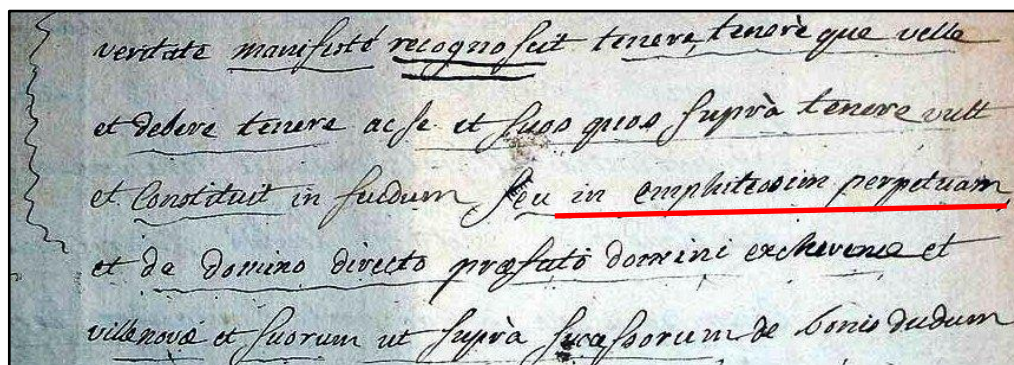 veritate manifesté recognoscit tenere, tenerè que velle
et debere tenere ac se et suos quos suprà tenere vult
et constituit in fudum seu in emphiteosim perpetuam,
et de domino directo præfatò domini et
villenovæ et suorum ut suprà sucessorum de bonis dudum